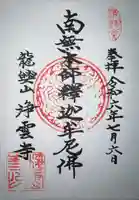 奉拝 令和六年七月六日
南無本師釈迦牟尼佛
龍興山 浄雲寺